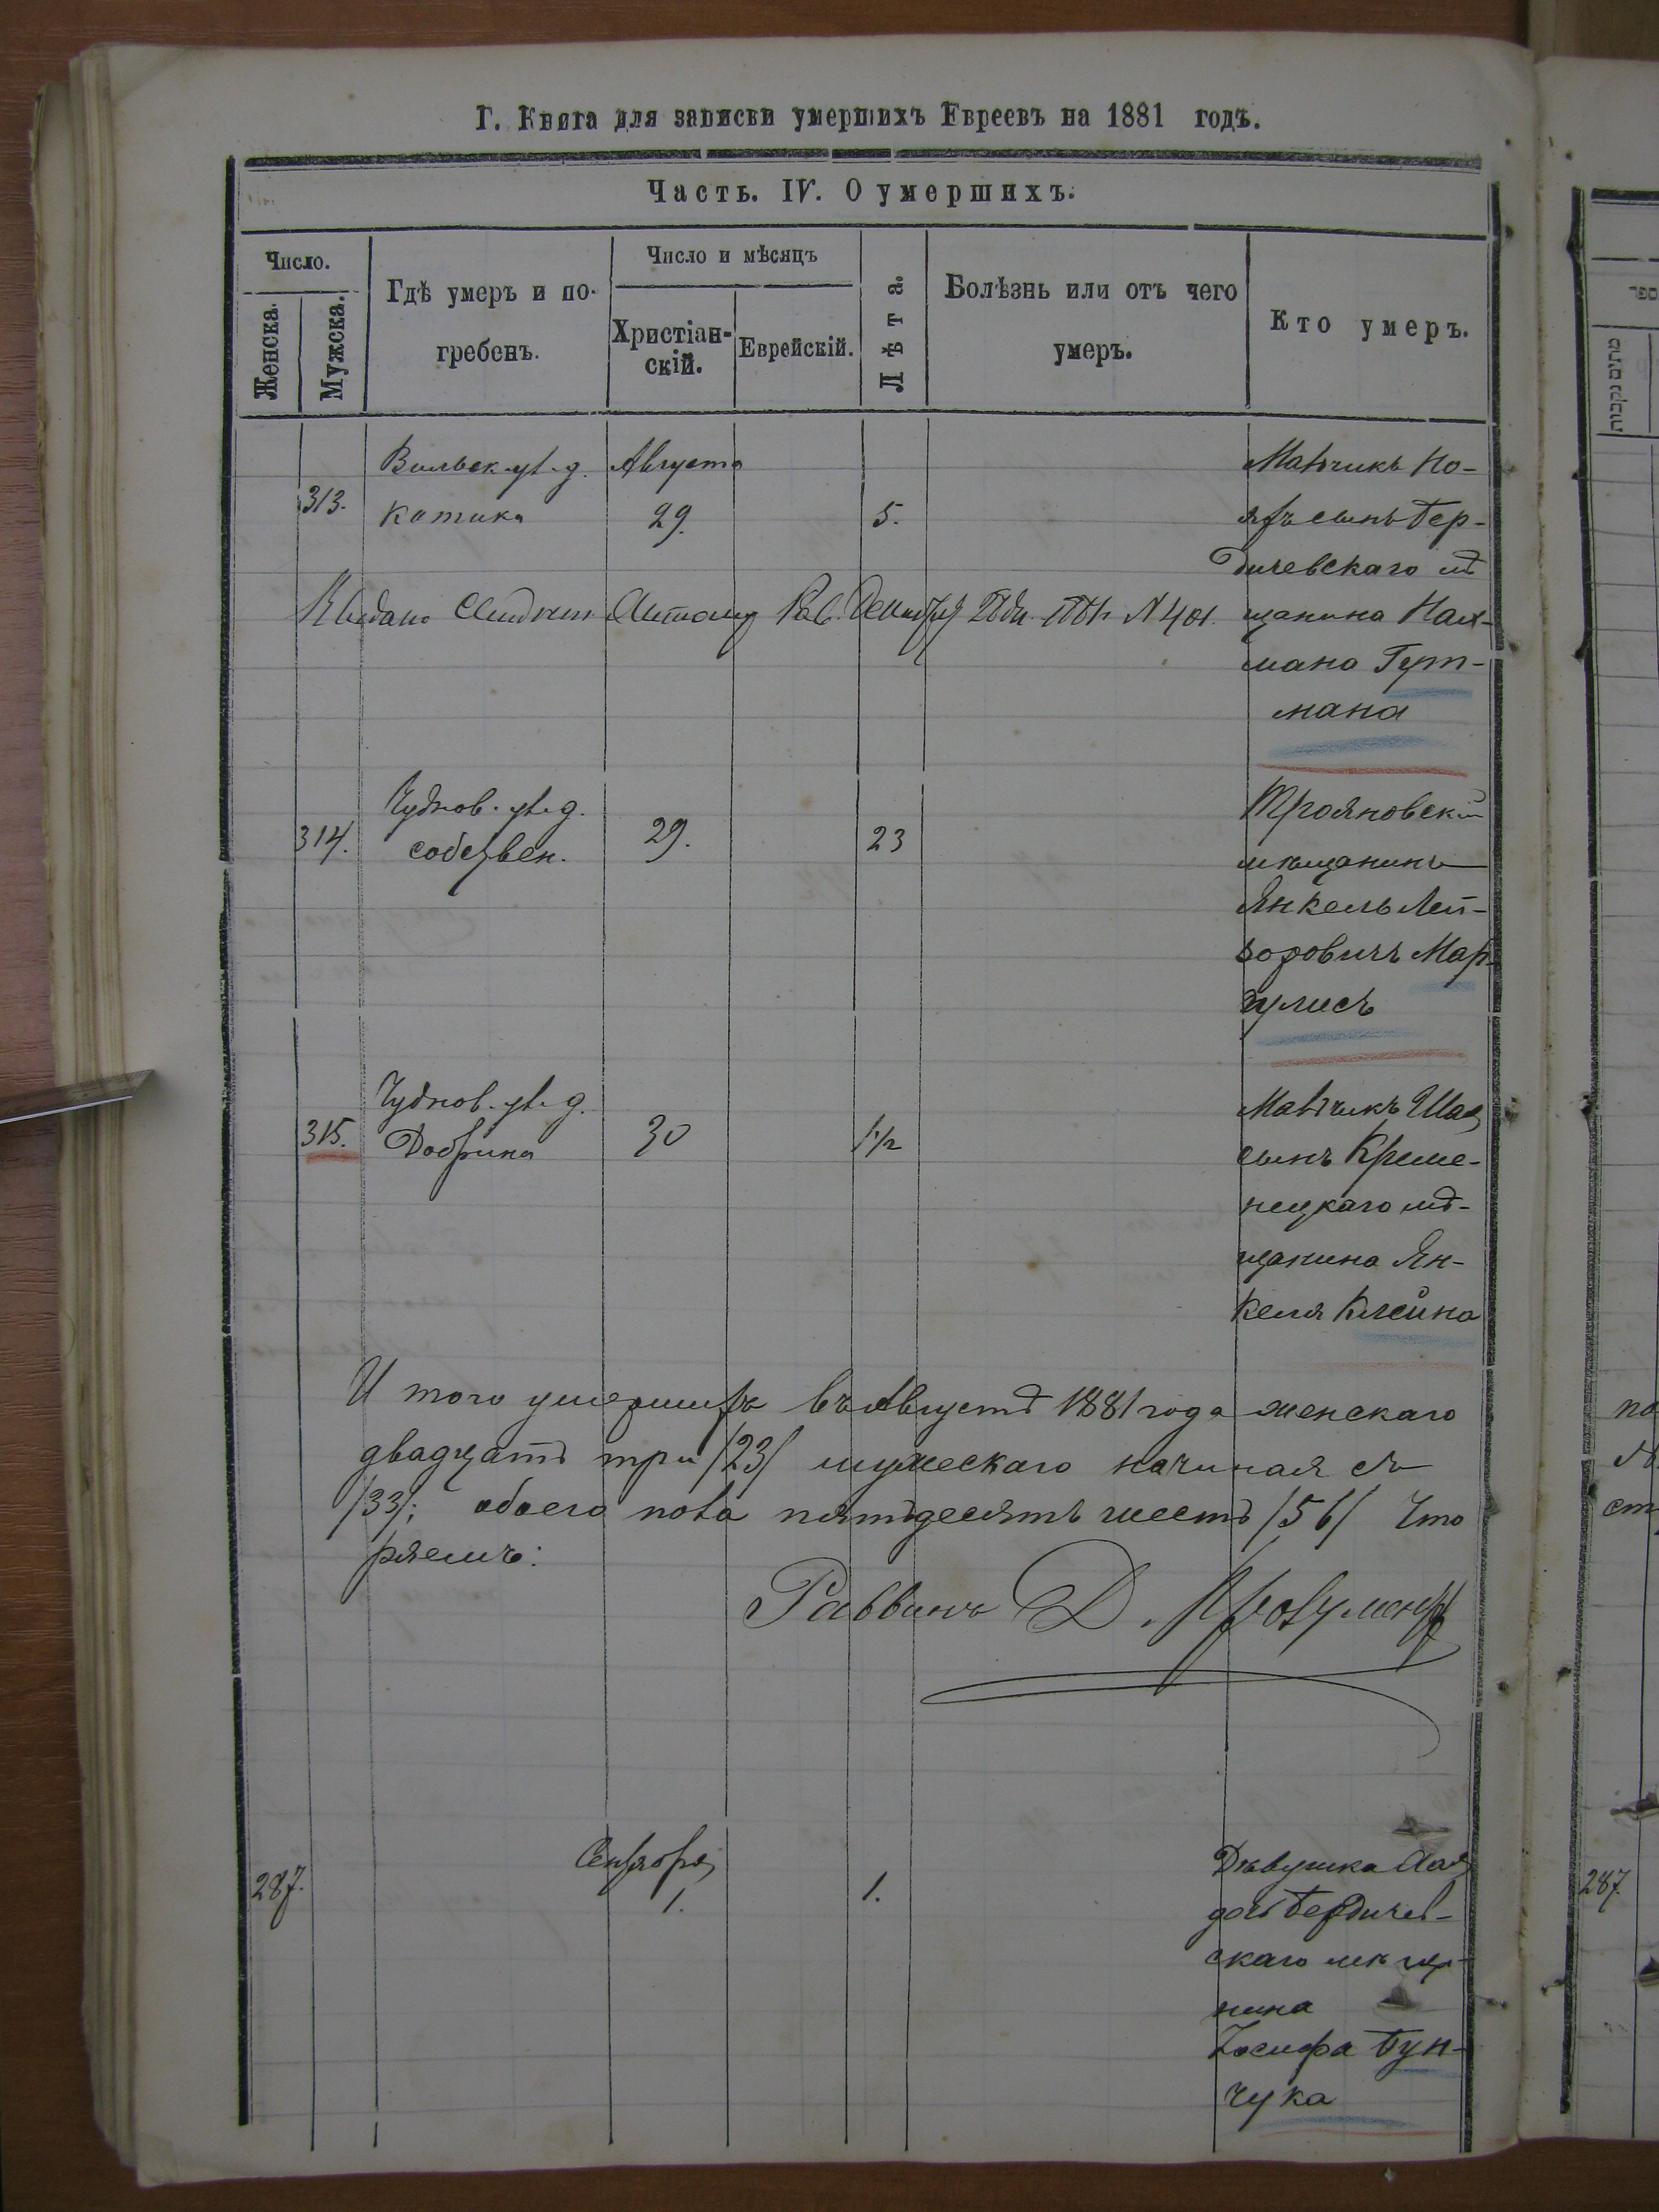 Г. Книга для записки умершихъ Евреевъ на 1881 годъ.
Часть. IV. О умершихъ.
Число.
Женска.
Мужска.
Гдѣ умеръ и по-
гребенъ.
Число и мѣсяцъ
Христіан-
скій.
Еврейскій.
Лѣта.
Болѣзнь или отъ чего
умеръ.
Кто умеръ.
313.
Вильск. ул. д.
Котика
Августа
29.
5.
Мальчикъ Но-
яхъ сынъ Бер-
дичевскаго мѣ
щанина Нах-
мана Гут-
мана
Выдано № 401.
314.
Чуднов. ул. д.
собствен.
29.
23
Трояновскій
мѣщанинъ
Янкель Лей-
зоровичъ Мар-
гулисъ
315.
Чуднов. ул. д.
Добрина
30
1/2
Мальчикъ Шая
сынъ Креме-
нецкаго мѣ-
щанина Ян-
келя Клейна
И того умершихъ въ Августѣ 1881 года женскаго
двадцать три /23/ мужескаго
/33/; обоего пола пятьдесятъ шесть /56/ Что
ряемъ:
Раввинъ Д.
287.
Сентября
1.
1.
Дѣвушка Хая
дочь Бердичев-
скаго мѣща-
нина
Іосифа Бун-
чука
287.